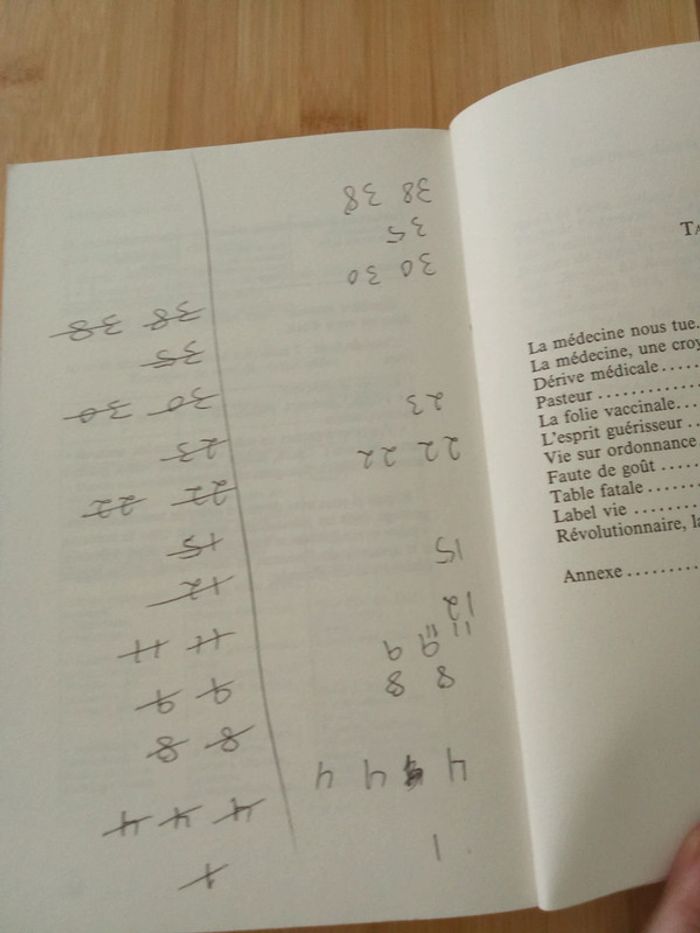 1
4 4 4
8 8
9 9
11 11
12
15
22 22
23
30 30
35
38 38
1
4 4 4
8 8
9 9
11 11
12
15
22 22
23
30 30
35
38 38
La médecine nous tue.
La médecine, une croy
Dérive médicale.....
Pasteur .............
La folie vaccinale...
L'esprit guérisseur ..
Vie sur ordonnance
Faute de goût .....
Table fatale .......
Label vie ........
Révolutionnaire, la
Annexe .........